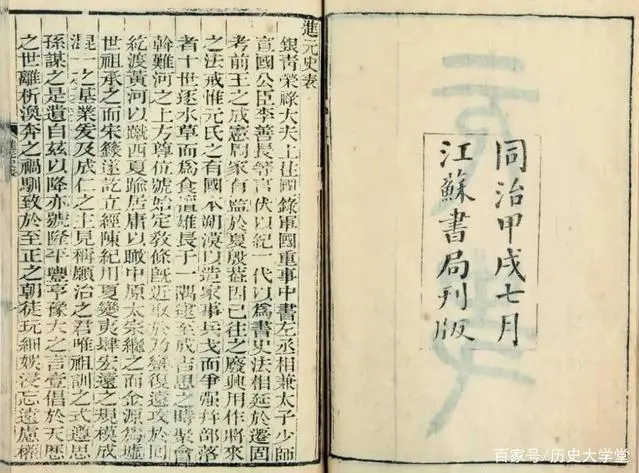 同治甲戌七月
江蘇書局刊版
進元史表
銀青榮祿大夫上柱國錄軍國重事中書左丞相兼太子少師
宣國公臣李善長等言伏以紀一代以爲書史法相延於遷固
考前王之成憲周家有監於夏殷葢因已往之廢興用作將來
之法戒惟元氏之有國本朔漠以造家事兵戈而爭強幷部落
者十世逐水草而爲食擅雄長于一隅逮至成吉思之時聚會
斡難河之上方尊位號始定敎條旣近取於乃蠻復遠攻於回
紇渡黃河以蹴西夏踰居庸以瞰中原太宗繼之而金源爲墟
世祖承之而宋籙遂訖立經陳紀用夏變夷肆宏遠之規模成
混一之基業爰及成仁之主見稱願治之君唯祖訓之式遵思
孫謀之是遺自兹以降亦號隆平豐亨豫大之言壹倡於天歷
之世離析渙奔之禍馴致於至正之朝徒玩細娛浸忘遠慮權
百家号/历史大学堂